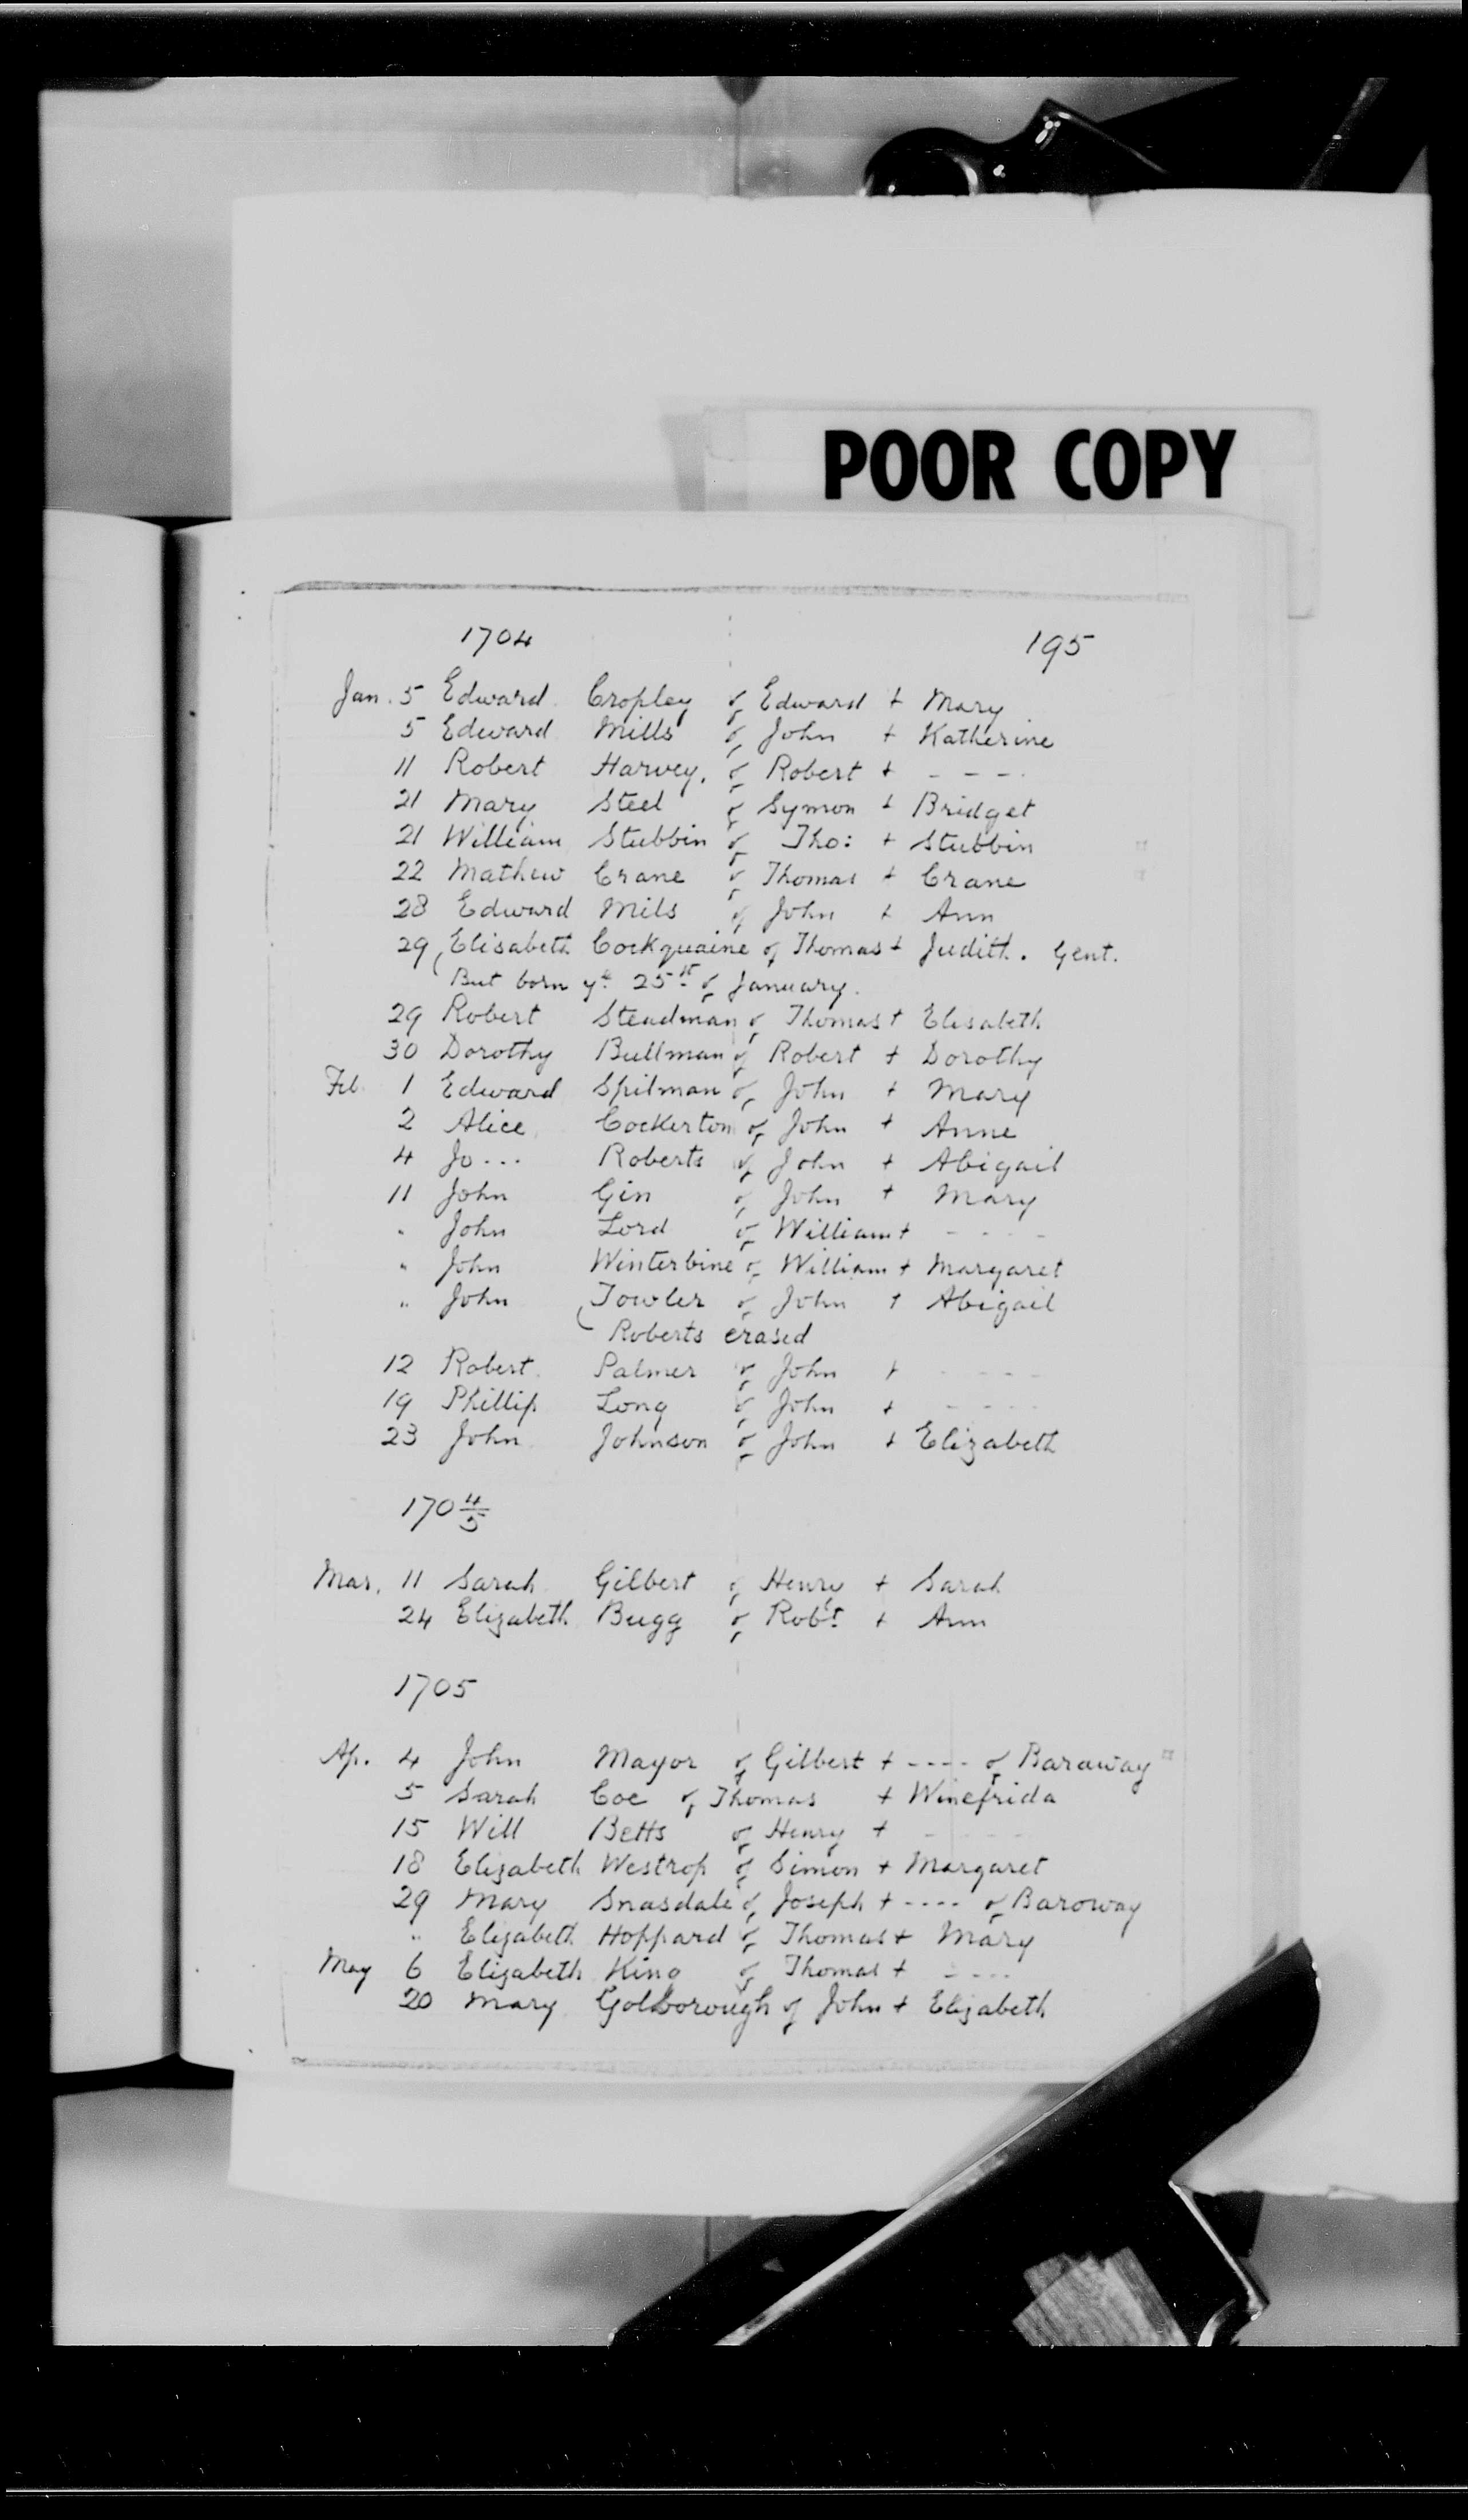 POOR COPY
1704 195
Jan. 5 Edward Cropley of Edward + Mary
5 Edward Mills of John + Katherine
11 Robert Harvey. of Robert + - - -
21 Mary Steel of Symon + Bridget
21 William Stubbin of Tho: + Stubbin
22 Mathew Crane of Thomas + Crane
28 Edward Mils of John + Ann
29 (Elisabeth Cockquaine of Thomas + Judith. Gent.
But born ye 25th of January.
29 Robert Steadman of Thomas + Elisabeth
30 Dorothy Bullman of Robert + Dorothy
Feb. 1 Edward Spilman of John + Mary
2 Alice Cockerton of John + Anne
4 Jo... Roberts of John + Abigail
11 John Gin of John + Mary
" John Lord of William + - - - -
" John Winterbine of William + Margaret
" John (Towler of John + Abigail
Roberts erased
12 Robert Palmer of John + - - - -
19 Phillip Long of John + - - - -
23 John Johnson of John + Elizabeth
170 4/5
Mar. 11 Sarah Gilbert of Henry + Sarah
24 Elizabeth Bugg of Robt + Ann
1705
Ap. 4 John Mayor of Gilbert + ---- of Baraway
5 Sarah Coe of Thomas + Winefrida
15 Will Betts of Henry + - - - -
18 Elizabeth Westrop of Simon + Margaret
29 Mary Snasdale of Joseph + ---- of Baroway
" Elizabeth Hoppard of Thomas + Mary
May 6 Elizabeth King of Thomas + ----
20 Mary Golborough of John + Elizabeth